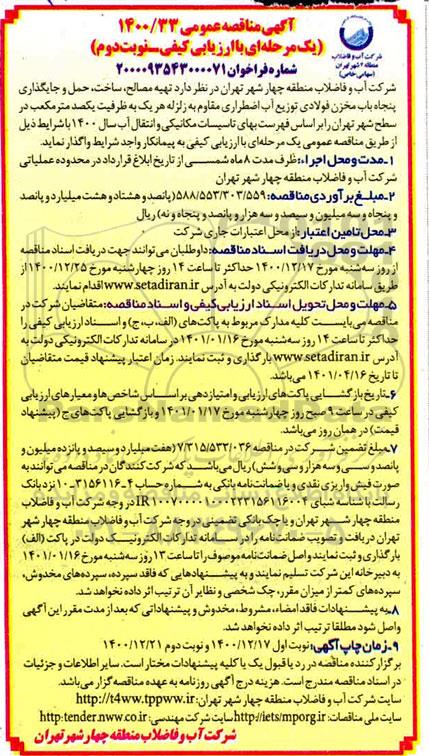 آگهی مناقصه عمومی ۱۴۰۰/۳۳
(یک مرحله‌ای با ارزیابی کیفی-نوبت دوم)
شماره فراخوان ۲۰۰۰۰۹۳۵۴۳۰۰۰۰۷۱
شرکت آب و فاضلاب
منطقه ۴ شهر تهران
(سهامی خاص)
شرکت آب و فاضلاب منطقه چهار شهر تهران در نظر دارد تهیه مصالح، ساخت، حمل و جایگذاری
پنجاه باب مخزن فولادی توزیع آب اضطراری مقاوم به زلزله هر یک به ظرفیت یکصد مترمکعب در
سطح شهر تهران را بر اساس فهرست بهای تاسیسات مکانیکی و انتقال آب سال ۱۴۰۰ با شرایط ذیل
از طریق مناقصه عمومی یک مرحله‌ای با ارزیابی کیفی به پیمانکار واجد شرایط واگذار نماید.
۱-مدت و محل اجراء: ظرف مدت ۸ ماه شمسی از تاریخ ابلاغ قرارداد در محدوده عملیاتی
شرکت آب و فاضلاب منطقه چهار شهر تهران
۲-مبلغ برآوردی مناقصه: ۵۸۸/۵۵۳/۳۰۳/۵۵۹ (پانصد و هشتاد و هشت میلیارد و پانصد
و پنجاه و سه میلیون و سیصد و سه هزار و پانصد و پنجاه و نه) ریال
۳-محل تامین اعتبار: از محل اعتبارات جاری شرکت
۴-مهلت و محل دریافت اسناد مناقصه: داوطلبان می‌توانند جهت دریافت اسناد مناقصه
از روز سه‌شنبه مورخ ۱۴۰۰/۱۲/۱۷ حداکثر تا ساعت ۱۴ روز چهارشنبه مورخ ۱۴۰۰/۱۲/۲۵ از
طریق سامانه تدارکات الکترونیکی دولت به آدرس www.setadiran.ir اقدام نمایند.
۵-مهلت و محل تحویل اسناد ارزیابی کیفی و اسناد مناقصه: متقاضیان شرکت در
مناقصه می‌بایست کلیه مدارک مربوط به پاکت‌های (الف،ب،ج) و اسناد ارزیابی کیفی را
حداکثر تا ساعت ۱۴ روز سه‌شنبه مورخ ۱۴۰۱/۰۱/۱۶ در سامانه تدارکات الکترونیکی دولت به
آدرس www.setadiran.ir بارگذاری و ثبت نمایند. زمان اعتبار پیشنهاد قیمت متقاضیان
تا تاریخ ۱۴۰۱/۰۴/۱۶ می‌باشد.
۶-تاریخ بازگشایی پاکت‌های ارزیابی و امتیازدهی بر اساس شاخص‌ها و معیارهای ارزیابی
کیفی در ساعت ۹ صبح روز چهارشنبه مورخ ۱۴۰۱/۰۱/۱۷ و بازگشایی پاکت‌های ج (پیشنهاد
قیمت) در همان روز می‌باشد.
۷-مبلغ تضمین شرکت در مناقصه ۷/۳۱۵/۵۳۳/۰۳۶ (هفت میلیارد و سیصد و پانزده میلیون و
پانصد و سی و سه هزار و سی و شش) ریال می‌باشد که شرکت کنندگان در مناقصه می‌توانند به
صورت فیش واریزی نقدی و یا ضمانت‌نامه بانکی به شماره حساب ۴-۳۱۵۶۱۱۶-۱۰ نزد بانک
رسالت با شناسه شبای
در وجه شرکت آب و فاضلاب
منطقه چهار شهر تهران و یا چک بانکی تضمینی در وجه شرکت آب و فاضلاب منطقه چهار شهر
تهران دریافت و تصویب ضمانت‌نامه را در سامانه تدارکات الکترونیک دولت در پاکت (الف)
بارگذاری و ثبت نمایند و اصل ضمانت‌نامه موصوف را تا ساعت ۱۳ روز سه‌شنبه مورخ ۱۴۰۱/۰۱/۱۶
به دبیرخانه این شرکت تسلیم نمایند و به پیشنهادهایی که فاقد سپرده، سپرده‌های مخدوش،
سپرده‌های کمتر از میزان مقرر، چک شخصی و نظایر آن ترتیب اثر داده نخواهد شد.
۸-به پیشنهادات فاقد امضاء، مشروط، مخدوش و پیشنهاداتی که بعد از مدت مقرر این آگهی
واصل شود مطلقا ترتیب اثر داده نخواهد شد.
۹-زمان چاپ آگهی: نوبت اول ۱۴۰۰/۱۲/۱۷ و نوبت دوم ۱۴۰۰/۱۲/۲۱
برگزار کننده مناقصه در رد یا قبول یک یا کلیه پیشنهادات مختار است. سایر اطلاعات و جزئیات
در اسناد مناقصه مندرج است. هزینه درج آگهی روزنامه به عهده مناقصه گزار می‌باشد.
سایت شرکت آب و فاضلاب منطقه چهار شهر تهران: http://t4ww.tppww.ir
سایت ملی مناقصات: http://iets/mporg.ir سایت شرکت مهندسی: http:tender.nww.co.ir
شرکت آب و فاضلاب منطقه چهار شهر تهران